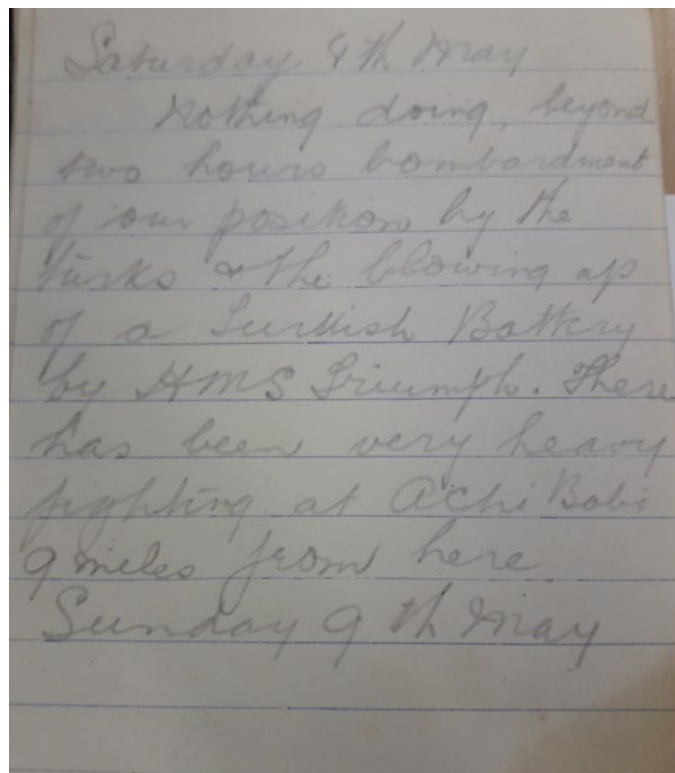 Saturday 8th May
Nothing doing, beyond
two hours bombardment
of our position by the
Turks & the blowing up
of a Turkish Battery
by HMS Triumph. There
has been very heavy
fighting at Achi Bobi
9 miles from here
Sunday 9th May